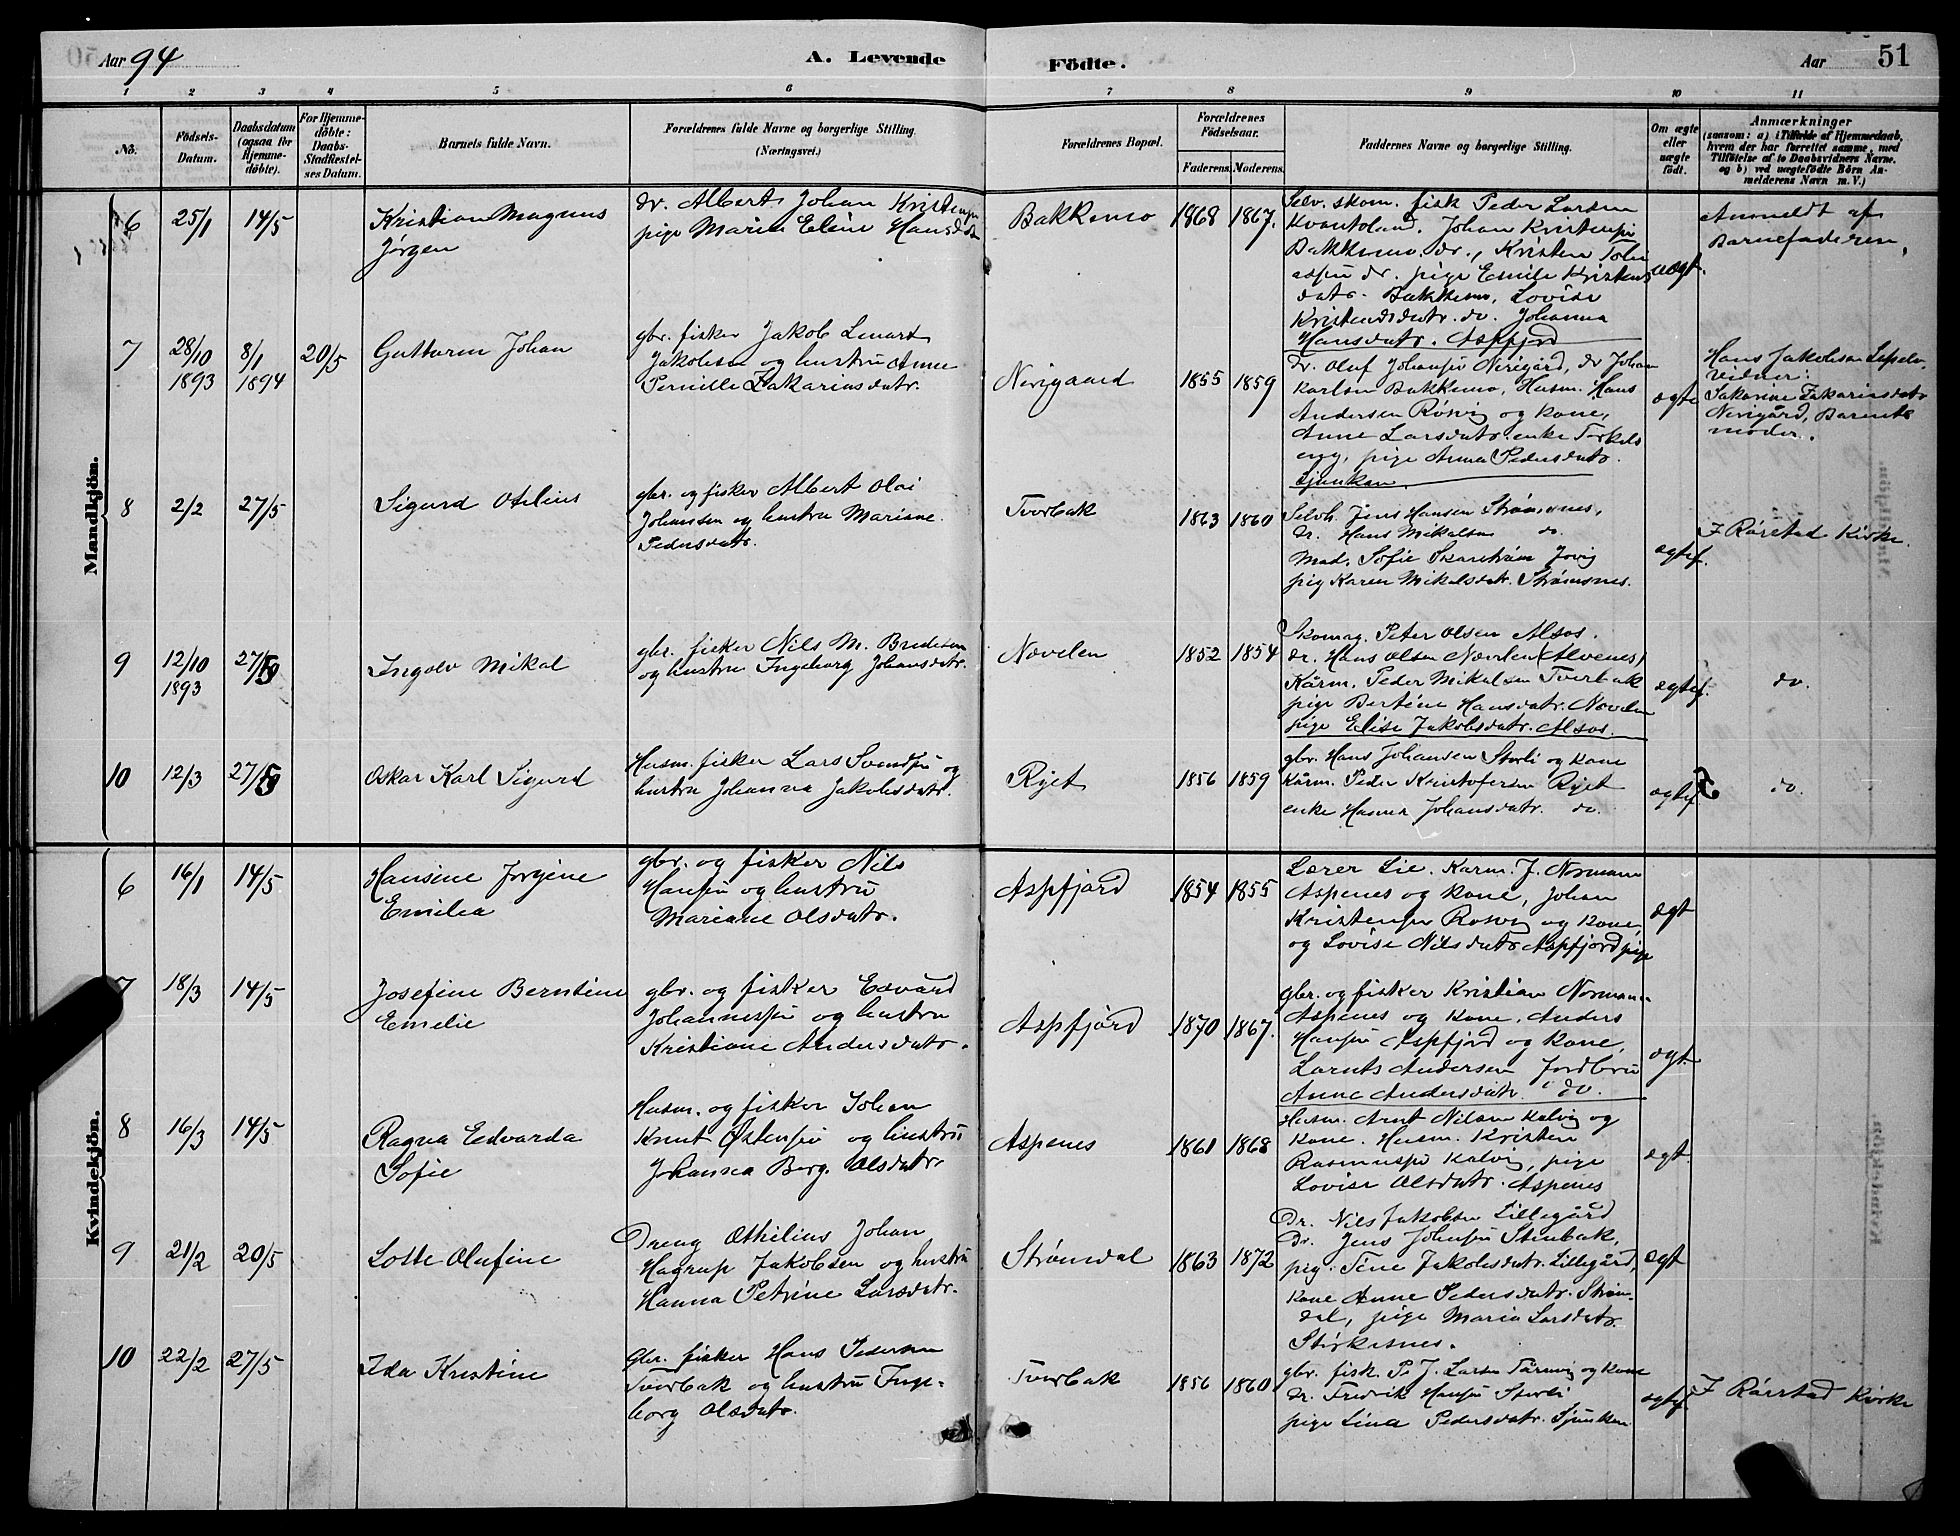 Aar 94
A. Levende
Födte.
Aar
51
1 2 3 4 5 6 7 8 9 10 11
No.
Födsels-Datum.
Daabsdatum (ogsaa for Hjemme-döbte).
For Hjemme-döbte: Daabs-Stadfæstel-ses Datum.
Barnets fulde Navn.
Forældrenes fulde Navne og borgerlige Stilling. (Næringsvei.)
Forældrenes Bopæl.
Forældrenes Födselsaar.
Faderens. Moderens.
Faddernes Navne og borgerlige Stilling.
Om ægte eller uægte født.
Anmærkninger
(saasom: a) i Tilfælde af Hjemmedaab,
hvem der har forrettet samme, med
Tilföielse af to Daabsvidners Navne.
og b) ved uægtefödte Börn An-
melderens Navn m. V.)
Mandkjön.
6 25/1 14/5
Kristian Magnus
Jørgen
dr. Albert Johan Kristensen
pige Marie Eline Hansdatr
Bakkemo
1868 1867.
Selv. skom. fisk Peder Larsen
Johan Kristensen
Bakkemo dr., Kristen
dr. pige Emile Kristens
datr. Bakkemo, Lovise
Kristensdatr. do. Johanna
Hansdatr. Aspfjord
uægt.
Anmeldt af
Barnefaderen.
7 28/10 1893 8/1 1894 20/5
Guttorm Johan
gbr. fisker Jakob Linart
Jakobsen og hustru Anne
Pernille Zakariasdatr.
Nerigaard
1855 1859
Dr. Oluf Johansen Nerigård, dr Johan
Karlsen Bakkemo, Husm. Hans
Andersen Røsvig og kone,
Anne Larsdatr. enke Torkels
eng, pige Anna Pedersdatr.
Sjunkan.
ægte
Hans Jakobsen
Vidner:
Zakariasdatr
Nerigård, Barnets
moder.
8 2/2 27/5
Sigurd Otelius
gbr. og fisker Albert Olai
Johansen og hustru Mariane
Pedersdatr.
Tverbak
1863 1860
Selvh. Jens Hansen Strømsnes,
dr. Hans Mikalsen do.
Mad. Sofie Skarstrøm
pig Karen Mikalsdatr. Strømsnes.
ægtef.
I Rørstad Kirke.
9 12/10 1893 27/5
Ingolv Mikal
gbr. fisker Nils M. Bredesen
og hustru Ingeborg Johansdatr.
Novelen
1852 1854
Skomag. Peter Olsen Alsos.
dr. Hans Olsen Novelen (Alvenes)
Kårm. Peder Mikalsen Tverbak
pige Bertine Hansdatr. Novelen
pige Elise Jakobsdatr. Alsos.
ægtef.
do.
10 12/3 27/5
Oskar Karl Sigurd
Husm. fisker Lars Svendsen og
hustru Johanna Jakobsdatr.
Ryet
1856 1859
gbr. Hans Johansen Storli og kone
Kårm. Peder Kristofersen Ryet
enke Johansdatr. do.
ægtef
do.
Kvindekjön.
6 16/1 14/5
Hansine Jørgine
Emilea
gbr. og fisker Nils
Hansen og hustru
Mariane Olsdatr.
Aspfjord
1854 1855
Lærer Lie. Karm. J. Normann
Aspenes og kone, Johan
Kristensen Rosvig og kone,
og Lovise Nilsdatr Aspfjord pige
ægt
7 18/3 14/5
Josefine Berntine
Emelie
gbr. og fisker Edvard
Johannesen og hustru
Kristiane Andersdatr.
Aspfjord
1870 1867.
gbr. og fisker Kristian Normann
Aspenes og kone. Anders
Hansen Aspfjord og kone,
Andersen Jordbru
Anne Andersdatr. do.
ægt.
8 16/3 14/5
Ragna Edvarda
Sofie
Husm. og fisker Johan
Knut Østensen og hustru
Johanna Berg. Olsdatr.
Aspenes
1861 1868
Husm. Arnt Nilsen Kalvig og
kone. Husm. Kristen
Rasmussen Kalvig, pige
Lovise Olsdatr. Aspenes
ægt.
9 21/2 20/5
Lotte Olufine
Dreng Othilius Johan
Hagrup Jakobsen og hustru
Hanna Petrine Larsdatr.
Strømdal
1863 1872
Dr. Nils Jakobsen Lillegård
Dr. Jens Johansen Stenbak,
pig. Tine Jakobsdatr. Lillegård,
kone Anne Pedersdatr. Strøm-
dal, pige Maria Larsdatr.
Styrkesnes.
ægt
10 22/2 27/5
Ida Kristine
Gbr. fisker Hans Pedersen
Tverbak og hustru Inge-
borg Olsdatr.
Tverbak
1856 1860
gbr. fisk. P. J. Larsen Tårnvig og kone
dr. Fredrik Hansen Storli
pige Lina Pedersdatr. Sjunkan
ægtef.
I Rørstad Kirke